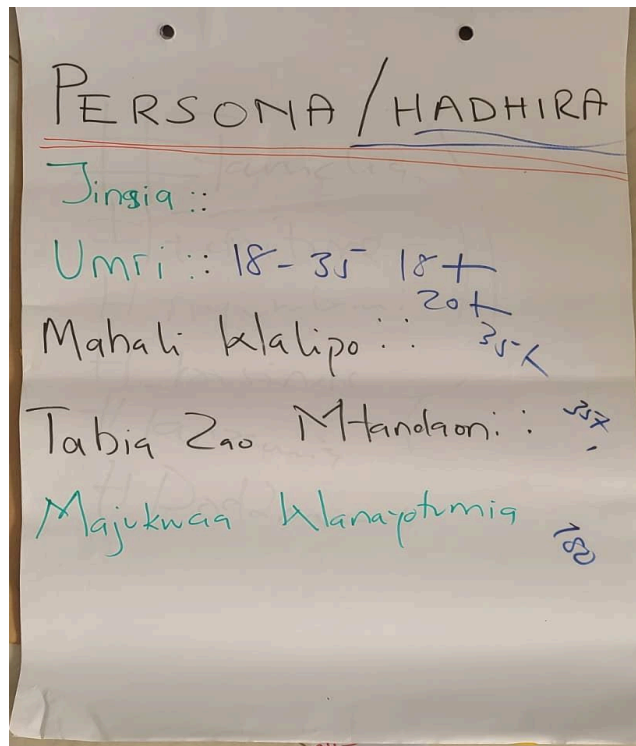 PERSONA/HADHIRA
Jinsia ::
Umri :: 18-35 18+
20+
Mahali Walipo :: 35+
Tabia Zao Mtandaoni :: 35+
Majukwaa Wanayotumia
180